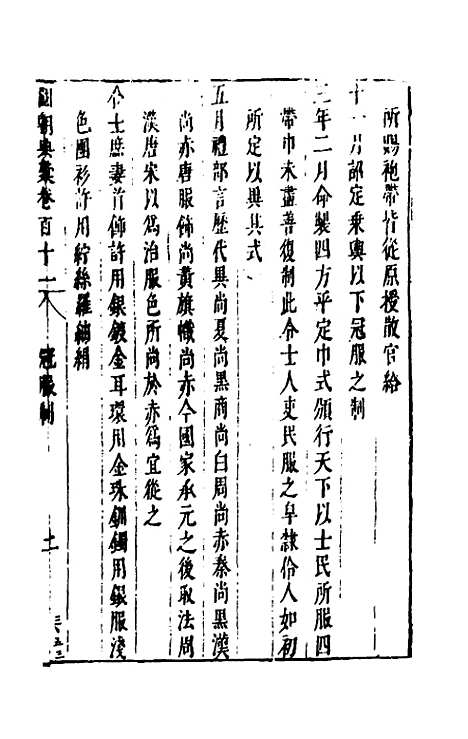 所賜袍帶皆從原授散官給
十一月詔定乘輿以下冠服之制
三年二月命製四方平定巾式頒行天下以士民所服四
帶巾未盡善復制此令士人吏民服之皁隸伶人如初
所定以異其式
五月禮部言歷代異尚夏尚黑商尚白周尚赤秦尚黑漢
尚赤唐服飾尚黃旗幟尚赤今國家承元之後取法周
漢唐宋以為治服色所尚於赤為宜從之
令士庶妻首飾許用銀鍍金耳環用金珠釧鐲用銀服淺
色團衫許用紵絲羅紬絹
國朝典彙卷百十一 冠服制